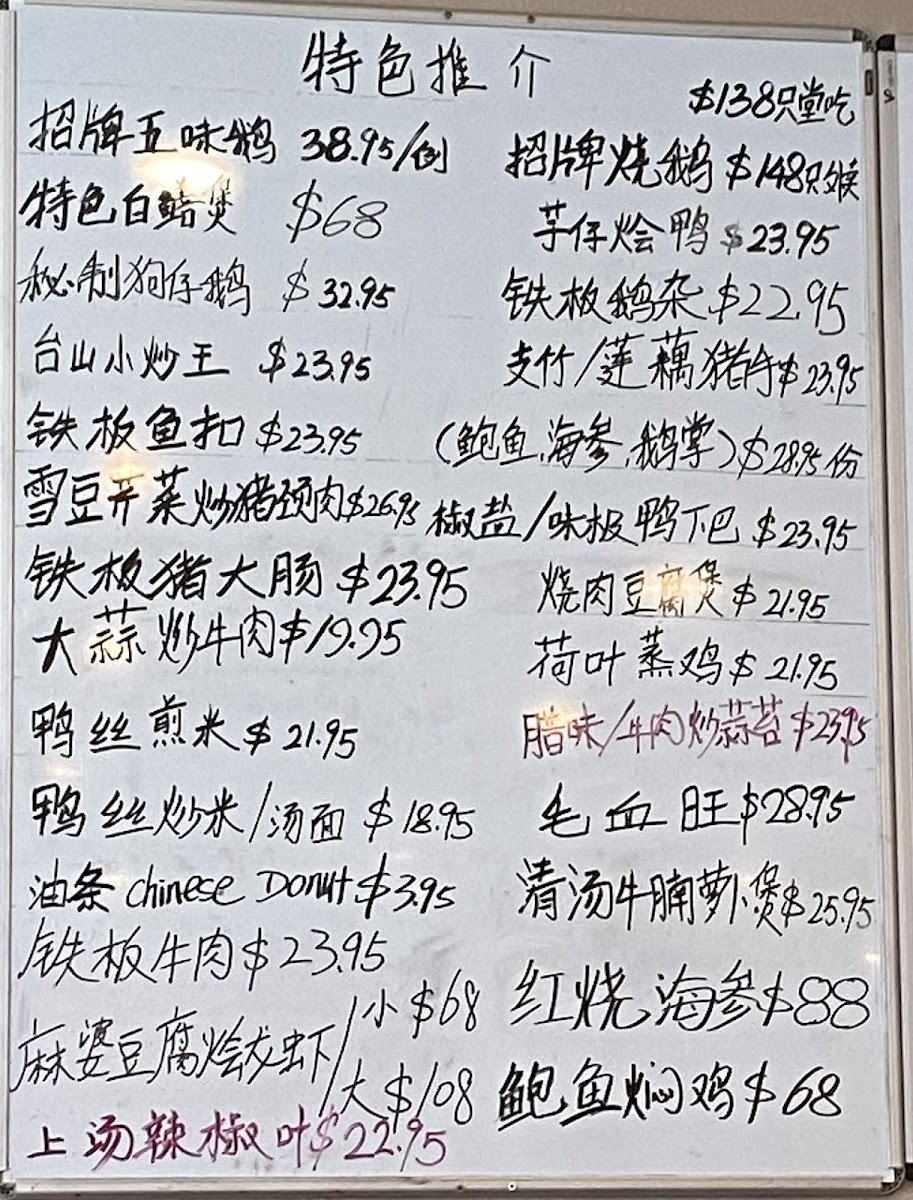 特色推介
招牌五味鹅 38.95/例
特色白鳝煲 $68
秘制狗仔鹅 $32.95
台山小炒王 $23.95
铁板鱼扣 $23.95
雪豆芥菜炒猪颈肉$26.95
铁板猪大肠 $23.95
大蒜炒牛肉$19.95
鸭丝煎米 $21.95
鸭丝炒米/汤面 $18.95
油条 chinese Donut $3.95
铁板牛肉 $23.95
麻婆豆腐烩龙虾/小 $68
大 $108
上汤辣椒叶$22.95
$138只堂吃
招牌烧鹅 $148只
芋仔烩鸭 $23.95
铁板鹅杂 $22.95
支竹/莲藕猪手$23.95
(鲍鱼.海参.鹅掌)$28.95份
椒盐/味极鸭下巴 $23.95
烧肉豆腐煲 $21.95
荷叶蒸鸡 $21.95
腊味/牛肉炒蒜苔 $23.95
毛血旺 $28.95
清汤牛腩萝卜煲$25.95
红烧海参$88
鲍鱼焖鸡 $68